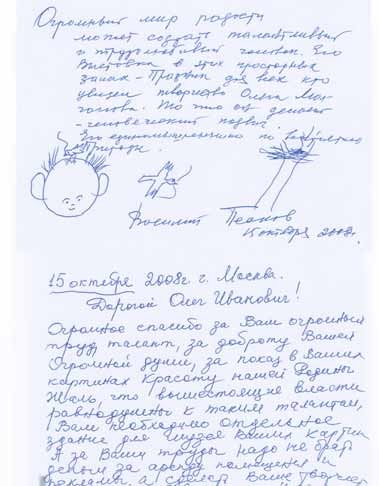 Огромный мир радости
может создать талантливый
и трудолюбивый человек. Его
выставка в этих просторных
залах - Праздник для всех кто
увидел творчество Олега
Это что он делает
- человеческий подвиг.
Его единомышленники по
Природе.
Василий Песков
октября 2008г.
15 октября 2008г г. Москва.
Дорогой Олег Иванович!
Огромное спасибо за Ваш огромный
труд, талант, за доброту Вашей
огромной души, за показ в Ваших
картинах красоту нашей Родины
Жаль, что вышестоящие власти
равнодушны к таким талантам,
Вам необходимо отдельное
здание для музея Ваших картин
А за Ваши труды надо не брать
деньги за аренду помещения и
рекламы, а сделать Ваше творчест